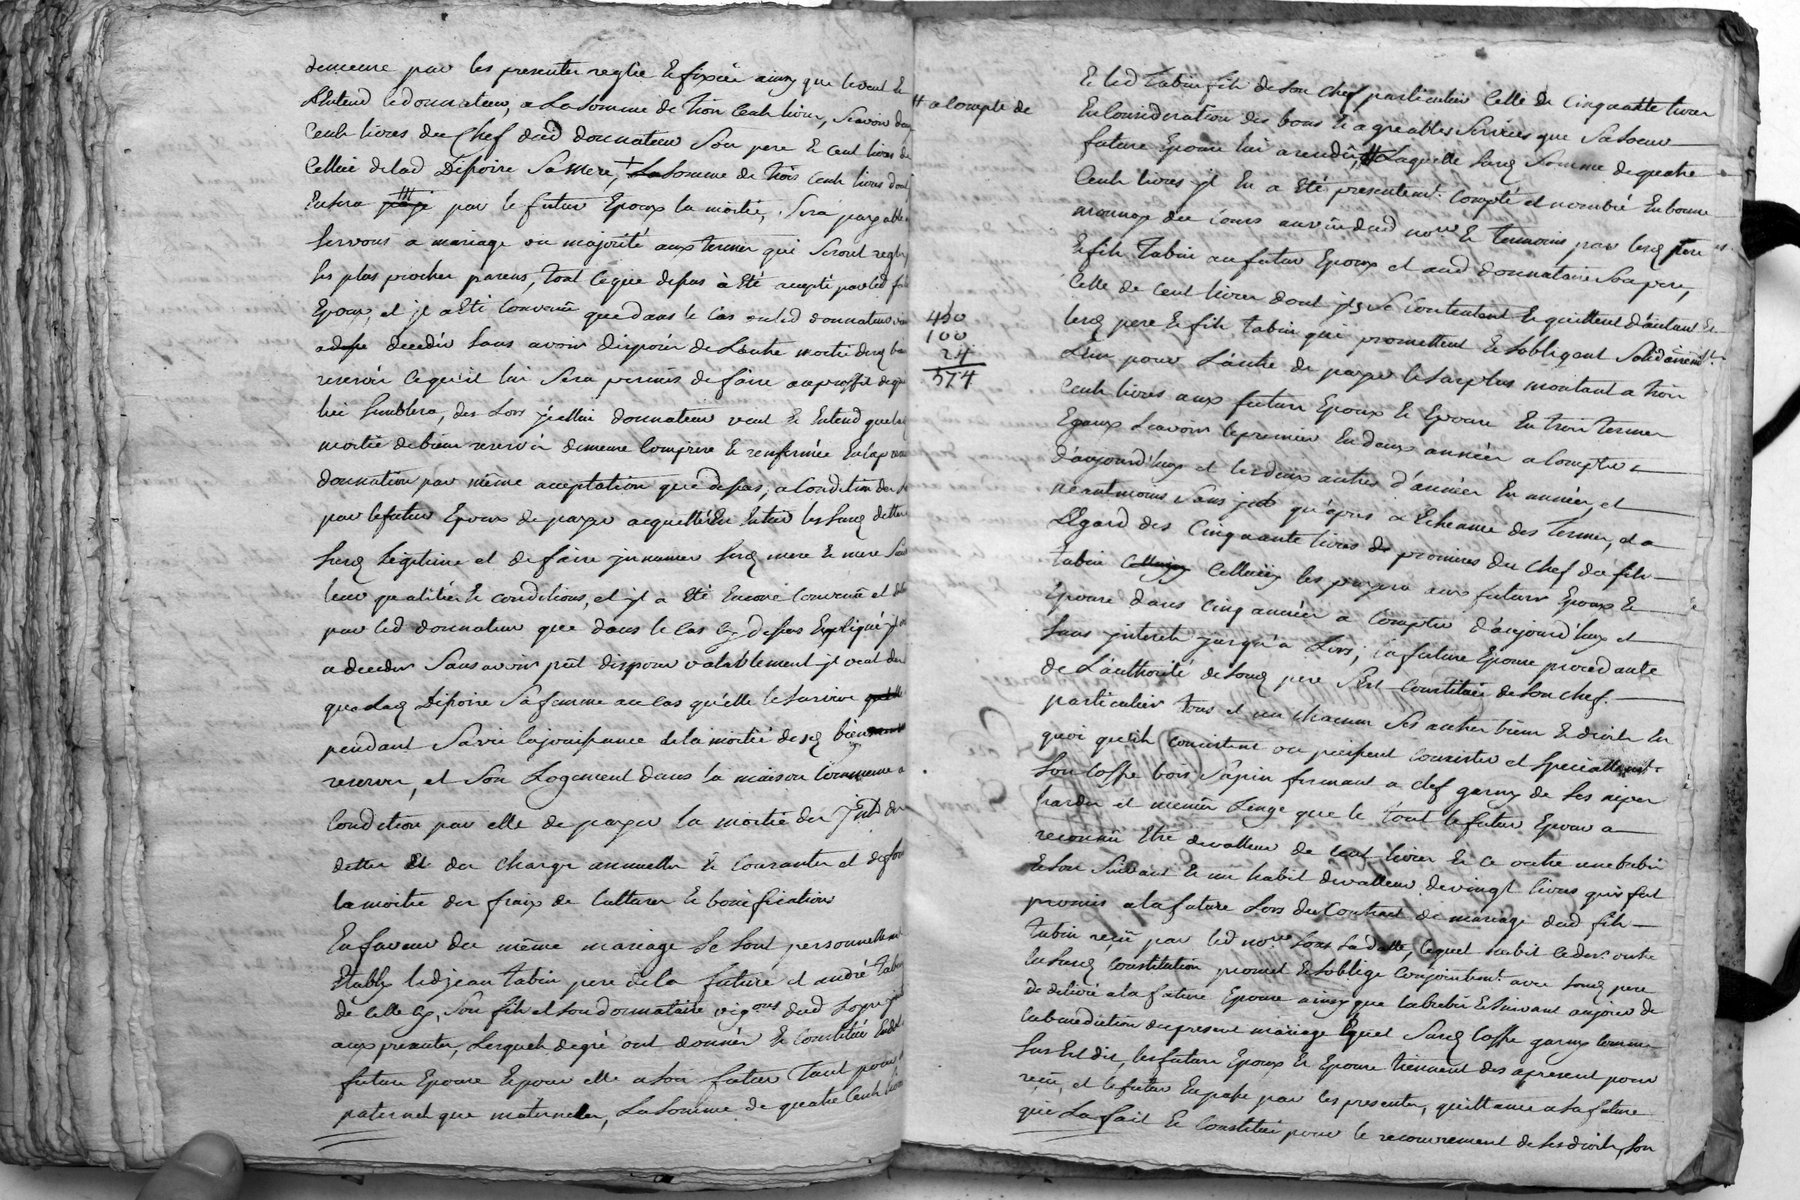 demeure par les presentes reglée & fixée ainsy que le veut &
L'Entend led donnateur, a La somme de trois Cents livres, Scavoir deux
Cents livres du Chef dud donnateur Son pere & cent livres de
Celluy de lad Depoire Sa Mere, La somme de trois Cents livres dont
En sera par le futur Epoux la moitié, Sera payable
a mariage ou majorité aux termes qui Seront reglés
les plus proches parens, tout ce que dessus à Eté accepté par led futur
Epoux, et il a Eté Convenû que dans le Cas ou led donnateur
decedér sans avoir disposér de L'autre moitié desd biens
reservér ce qu'il lui Sera permis de faire au proffit de qui
lui semblera, des Lors donnateur veut & Entend que lad
moitié de biens reservér demeure Comprise & renfermée En la presente
donnation par même acceptation que dessus, a Condition
par le futur Epoux de payer acquitter En Entier les susd dettes
susd legitime et de faire jnhumer susd mere & mere
leur qualité & conditions, et il a Eté Encore Convenû et
par led donnateur que dans le Cas cy dessus Expliqué
a deceder Sans avoir peût disposer valablement il veut
que lad Depoire Sa femme au cas qu'elle le Survive
pendant Sa vie la jouissance de la moitié desd biens
reservér, et Son Logement dans la maison Commune a
Condition par elle de payer la moitié des
dettes & des charges annuelles & Courantes et
la moitié des fraix de Cultures & bonification
En faveur du même mariage Se Sont personnellement
Etablis led jean tabin pere de la future et andré tabin
de celle cy, Son fils et Son donnataire dud
aux presentes, Lesquels de gré ont donnér & Constituér
future Epouse & pour elle a Son futur tant pour
paternel que maternels, La Somme de quatre Cents livres
# a Compte de
450
100
24
574
& led tabin fils de Son Chef particulier Celle de Cinquante livres
En Consideration des bons & agreables Services que Sa Soeur
future Epouse lui a rendû, # Laquelle susd Somme de quatre
Cents livres jl En a Eté presentemt. Compté et nombré En bonne
monnoye du Cours au vû dud nore & temoins par lesd pere
& fils tabin au futur Epoux et aud donnataire Son pere,
Celle de Cent livres dont jls Se Contentent & quittent d'autant
lesd pere & fils tabin qui promettent & Sobligent Solidairemt.
L'un pour L'autre de payer le Surplus montant a trois
Cents livres aux futurs Epoux & Epouse En trois termes
Egaux Scavoir le premier En deux années a Compter
d'aujourd'huy et les deux autres d'année En année, et
neantmoins Sans jnt qu'après a Echeance des termes, et a
L'Egard des Cinquante livres promises du Chef du fils
tabin Celluy les payera aux futurs Epoux &
Epouse dans Cinq années a Compter d'aujourd'huy et
Sans jnterets jusqu'à Lors; La future Epouse procedante
de L'authorité de Sond pere S'Est Constituée de Son Chef
particulier tous et un chacun Ses autres biens & droits En
quoi qu'ils Consistent ou puissent Consister et Specialement
Son Coffre bois Sapin fermant a clef garny de Ses nipes
hardes et menûs Linge que le tout le futur Epoux a
reconnû Etre de valleur de cent livres & ce outre une brebis
& Son Suivant & un habit de valleur de vingt livres quis fut
promis a la future Lors du Contract de mariage dud fils
tabin reçû par led nore Sous Sa datte, lequel habit
En Susd Constitution promet & Soblige Conjointemt. avec Sond pere
de delivré a la future Epouse ainsy que la brebis & Suivant au jour de
la benediction du present mariage & quel Susd Coffre garny Comme
Sus Est dit, les futurs Epoux & Epouse tiennent des apresent pour
reçû, et le futur En passe par les presentes, quittance a la future
qui La fait & Constitué pour le recouvrement de Ses droits, Son